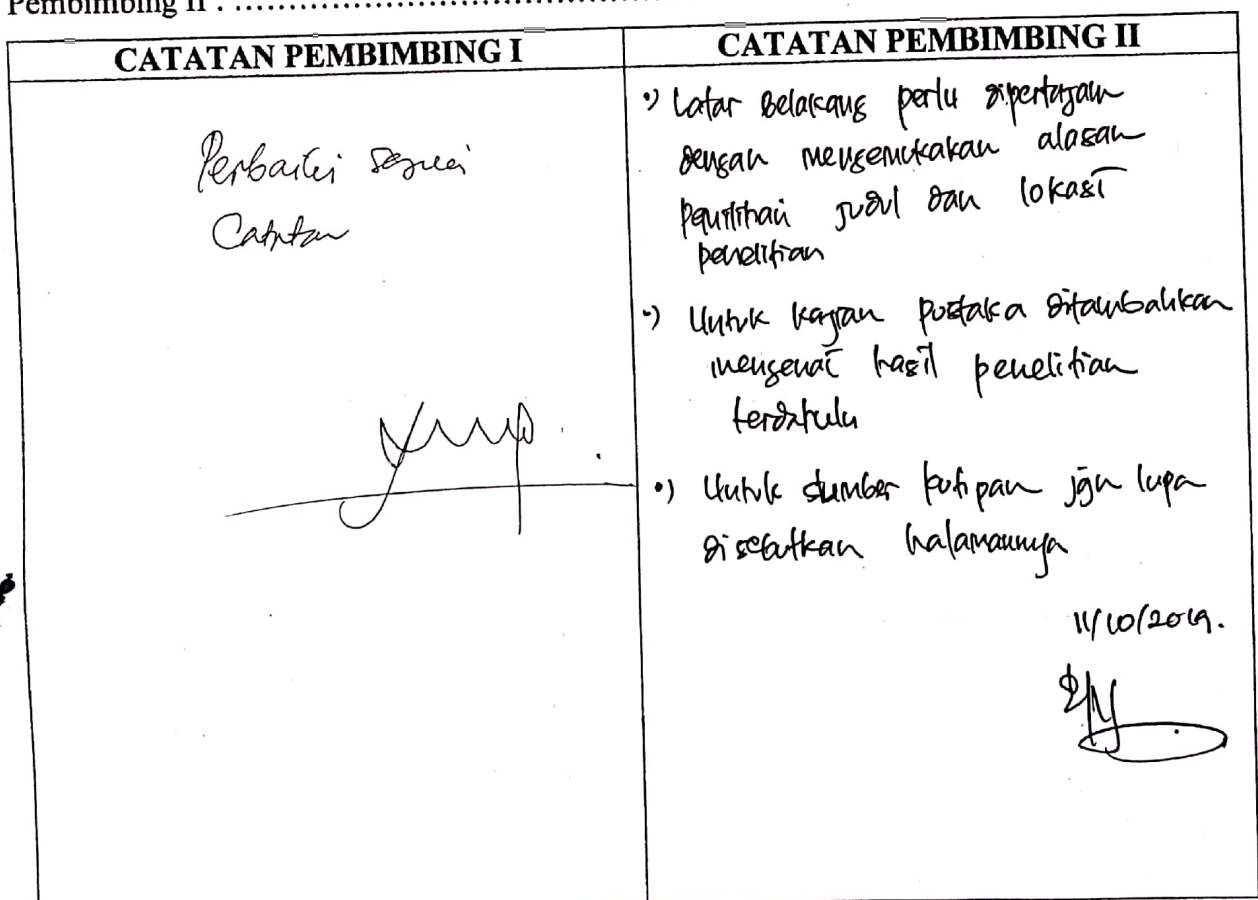 Pembimbing II : ......................................................
CATATAN PEMBIMBING I
Perbaiki sesuai
Catatan
CATATAN PEMBIMBING II
•) Latar Belakang perlu dipertajam
dengan mengemukakan alasan
pemilihan judul dan lokasi
penelitian
•) Untuk kajian pustaka ditambahkan
mengenai hasil penelitian
terdahulu
•) Untuk sumber kutipan jgn lupa
disebutkan halamannya
11/10/2019.